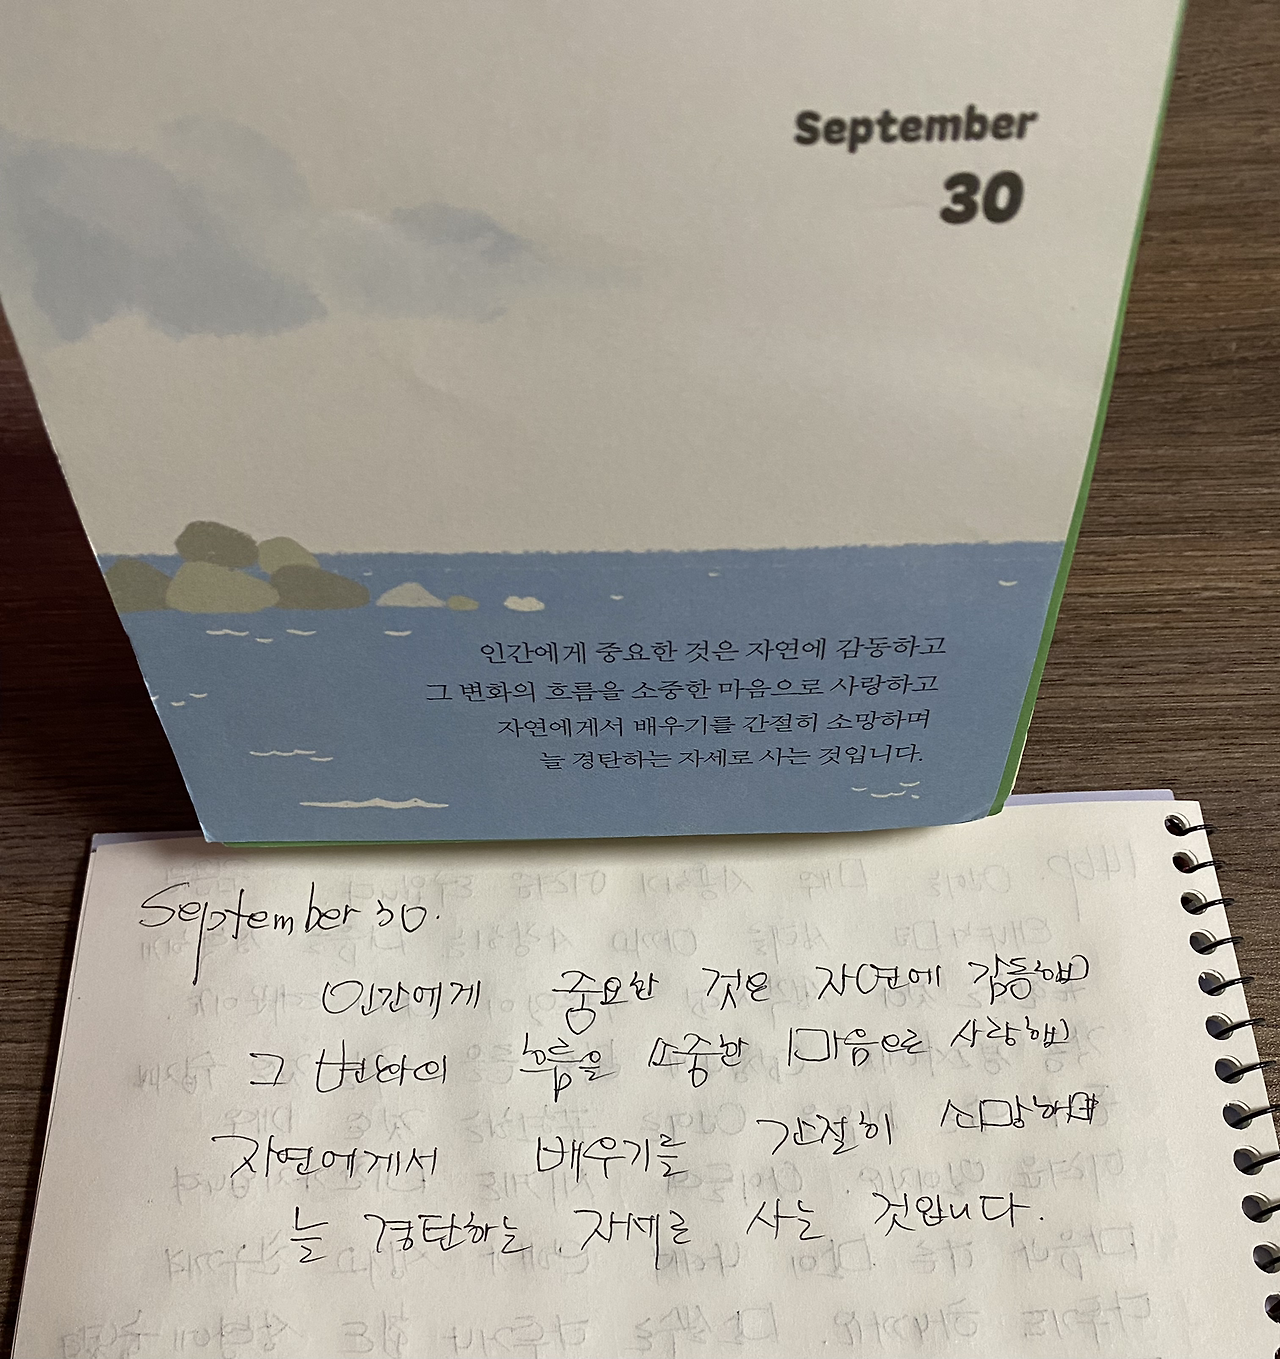 September
30
인간에게 중요한 것은 자연에 감동하고
그 변화의 흐름을 소중한 마음으로 사랑하고
자연에게서 배우기를 간절히 소망하며
늘 경탄하는 자세로 사는 것입니다.
September 30.
인간에게 중요한 것은 자연에 감동하고
그 변화의 흐름을 소중한 마음으로 사랑하고
자연에게서 배우기를 간절히 소망하며
늘 경탄하는 자세로 사는 것입니다.